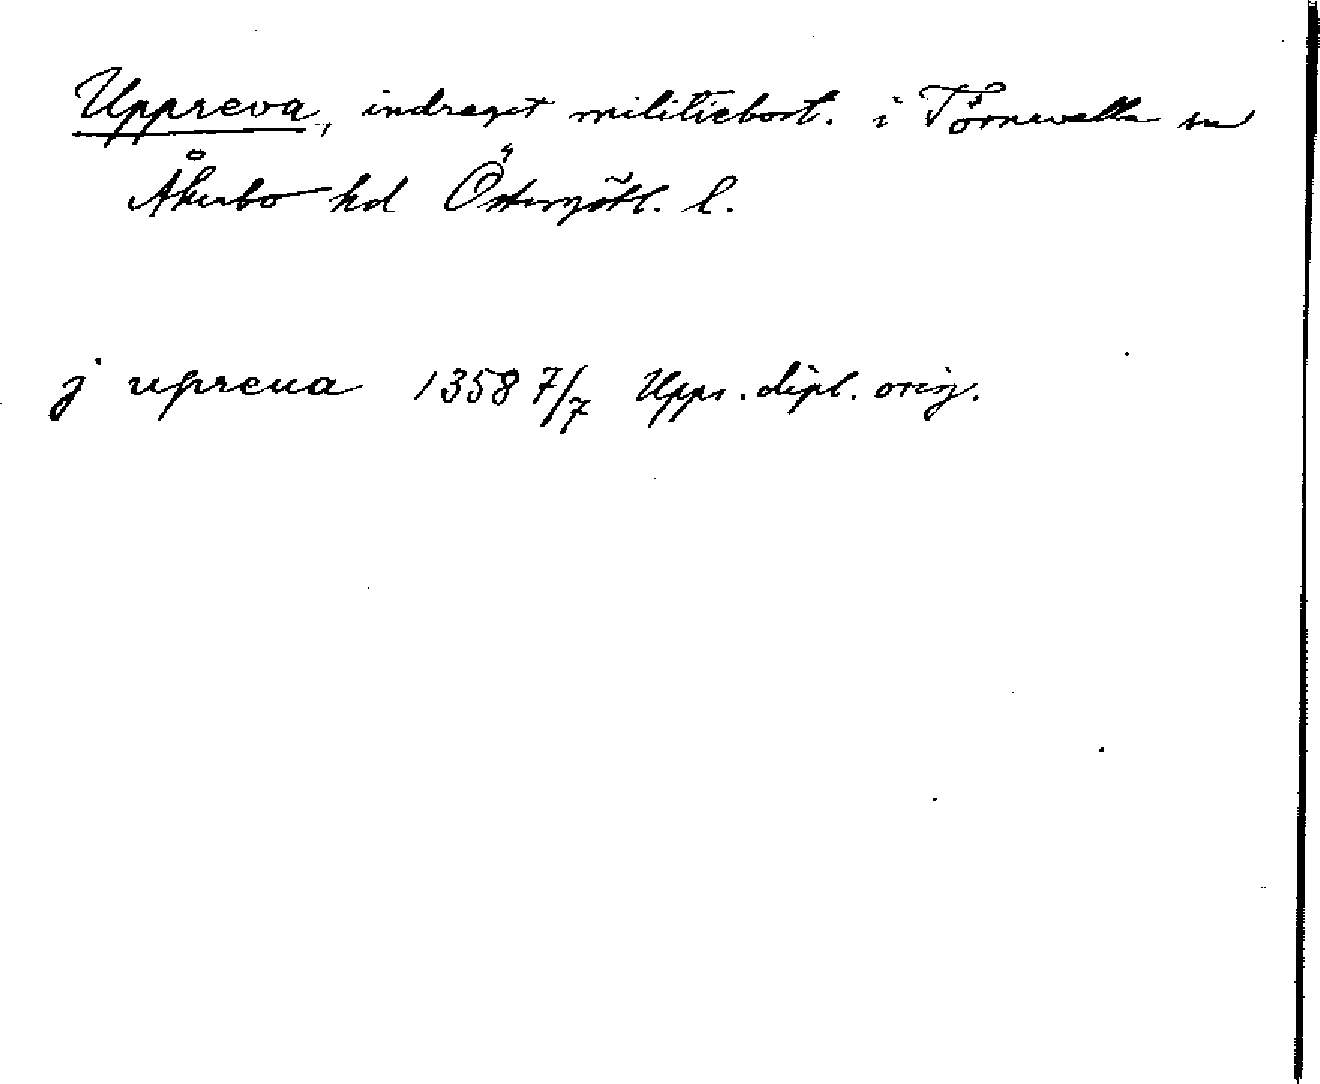 Uppreva, indraget militiebost. i Törnevalla sn
Åkerbo hd Östergötl. l.
j upreua 1358 7/7 Upps. dipl. orig.